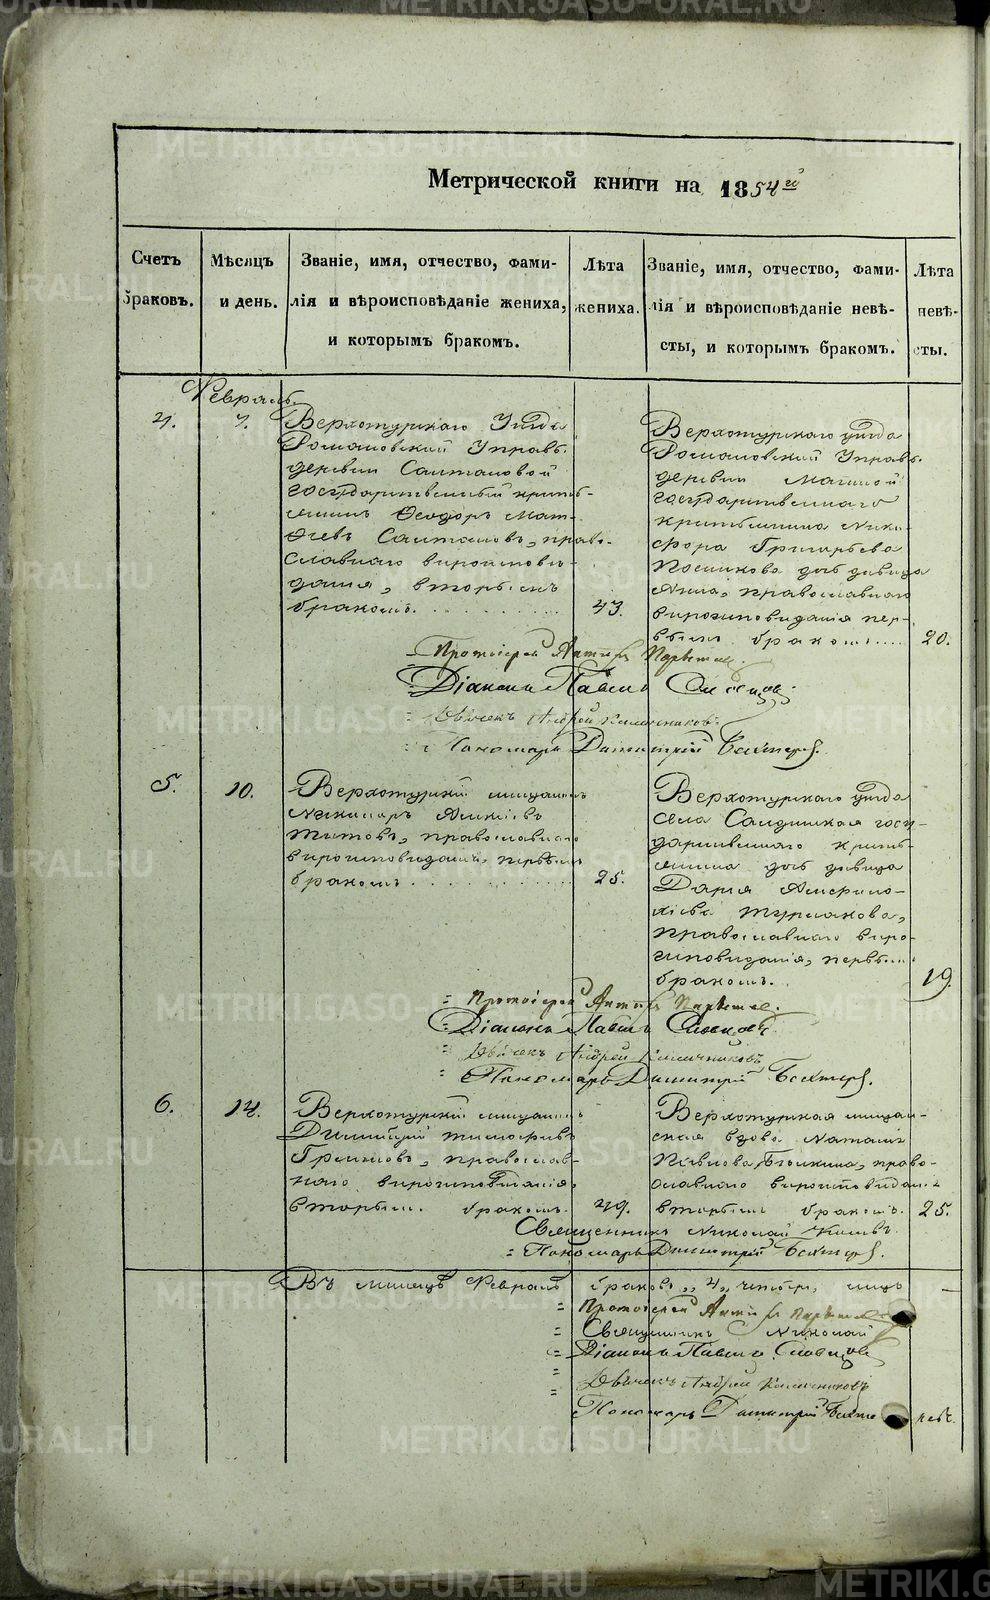 Метрической книги на 1854й
Счетъ браковъ.
Мѣсяцъ и день.
Званіе, имя, отчество, фами-
лія и вѣроисповѣданіе жениха,
и которымъ бракомъ.
Лѣта жениха.
Званіе, имя, отчество, фами-
лія и вѣроисповѣданіе невѣ-
сты, и которымъ бракомъ.
Лѣта невѣ-
сты.
Февраль.
4.
7.
Верхотурскаго Уѣзда
Романовской Управы
деревни Салтановой
государственный кресть-
янинъ Ѳеодоръ Мат-
ѳѣевъ Салтановъ, право-
славнаго вѣроисповѣ-
данія, вторымъ
бракомъ.
43.
Верхотурскаго уѣзда
Романовской Управы
деревни
государственнаго
крестьянина Ники-
фора Григорьева
Постникова дочь дѣвица
Анна, православнаго
вѣроисповѣданія пер-
вымъ бракомъ
20.
Протоіерей
Діаконъ Павелъ Словцовъ
Дьячекъ Андрей Калачниковъ
Пономарь Димитрій Бахтеръ
5.
10.
Верхотурскій мѣщанинъ
Никаноръ Алексѣевъ
Титовъ, православнаго
вѣроисповѣданія, первымъ
бракомъ
25.
Верхотурскаго уѣзда
села Салдинскаго госу-
дарственнаго кресть-
янина дочь дѣвица
Дарія
православнаго вѣро-
исповѣданія, первымъ
бракомъ.
19.
Протоіерей
Діаконъ Павелъ Словцовъ
Дьячекъ Андрей Калачниковъ
Пономарь Димитрій Бахтеръ
6.
14.
Верхотурскій мѣщанинъ
Димитрій Тимофѣевъ
православ-
наго вѣроисповѣданія
вторымъ бракомъ.
49.
Верхотурская мѣщан-
ская вдова Наталія
Павлова право-
славнаго вѣроисповѣданія
вторымъ бракомъ.
25.
Священникъ Николай
Пономарь Димитрій Бахтеръ
Въ мѣсяцѣ Февралѣ браковъ "4" четыре
Протоіерей
Священникъ Николай
Діаконъ Павелъ Словцовъ
Дьячекъ Андрей Калачниковъ
Пономарь Димитрій
METRIKI.GASO-URAL.RU